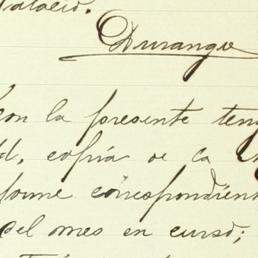 Palacio.
Durango
con la presente ten
d, copia de la
forme correspondien
del mes en curso;